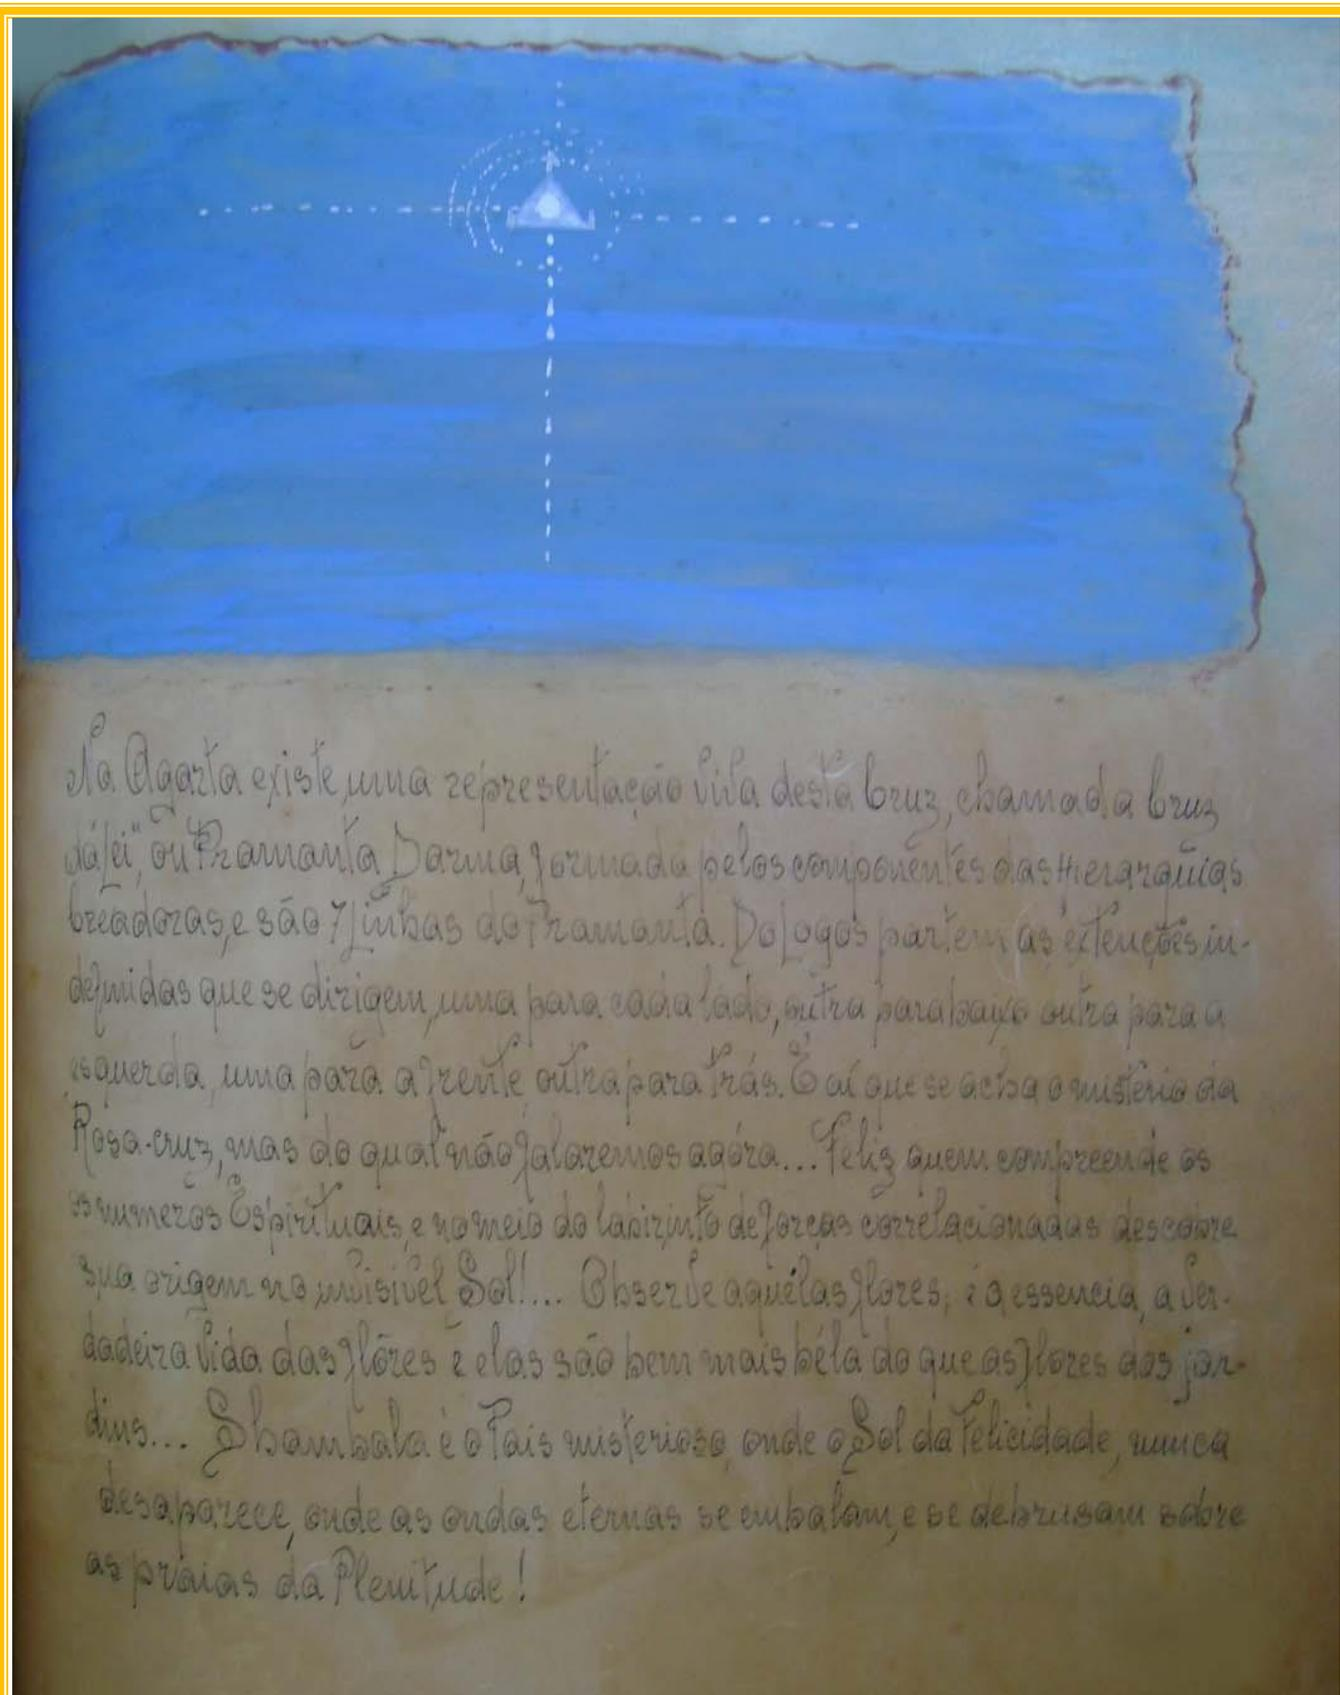 Na Agarta existe, uma representação viva desta Cruz, chamada Cruz
da Lei", ou Pramanta Darma, formada pelos componentes das Hierarquias
Creadoras, e são 7 Linhas do Pramanta. Do Logos partem as extenções in-
definidas que se dirigem, uma para cada lado, outra para baixo outra para a
esquerda, uma para a frente outra para trás. É aí que se acha o mistério da
Rosa-cruz, mas do qual não falaremos agóra... Feliz quem compreende os
os numeros Espirituais, e no meio do labirinto de forças correlacionadas descobre
sua origem no invisivel Sol!... Observe aquélas flores; é a essencia, a ver-
dadeira vida das flôres e elas são bem mais béla do que as flores dos jar-
dins... Shambala é o Pais misterioso, onde o Sol da Felicidade, nunca
desaparece, onde as ondas eternas se embalam, e se debrusam sobre
as práias da Plenitude!